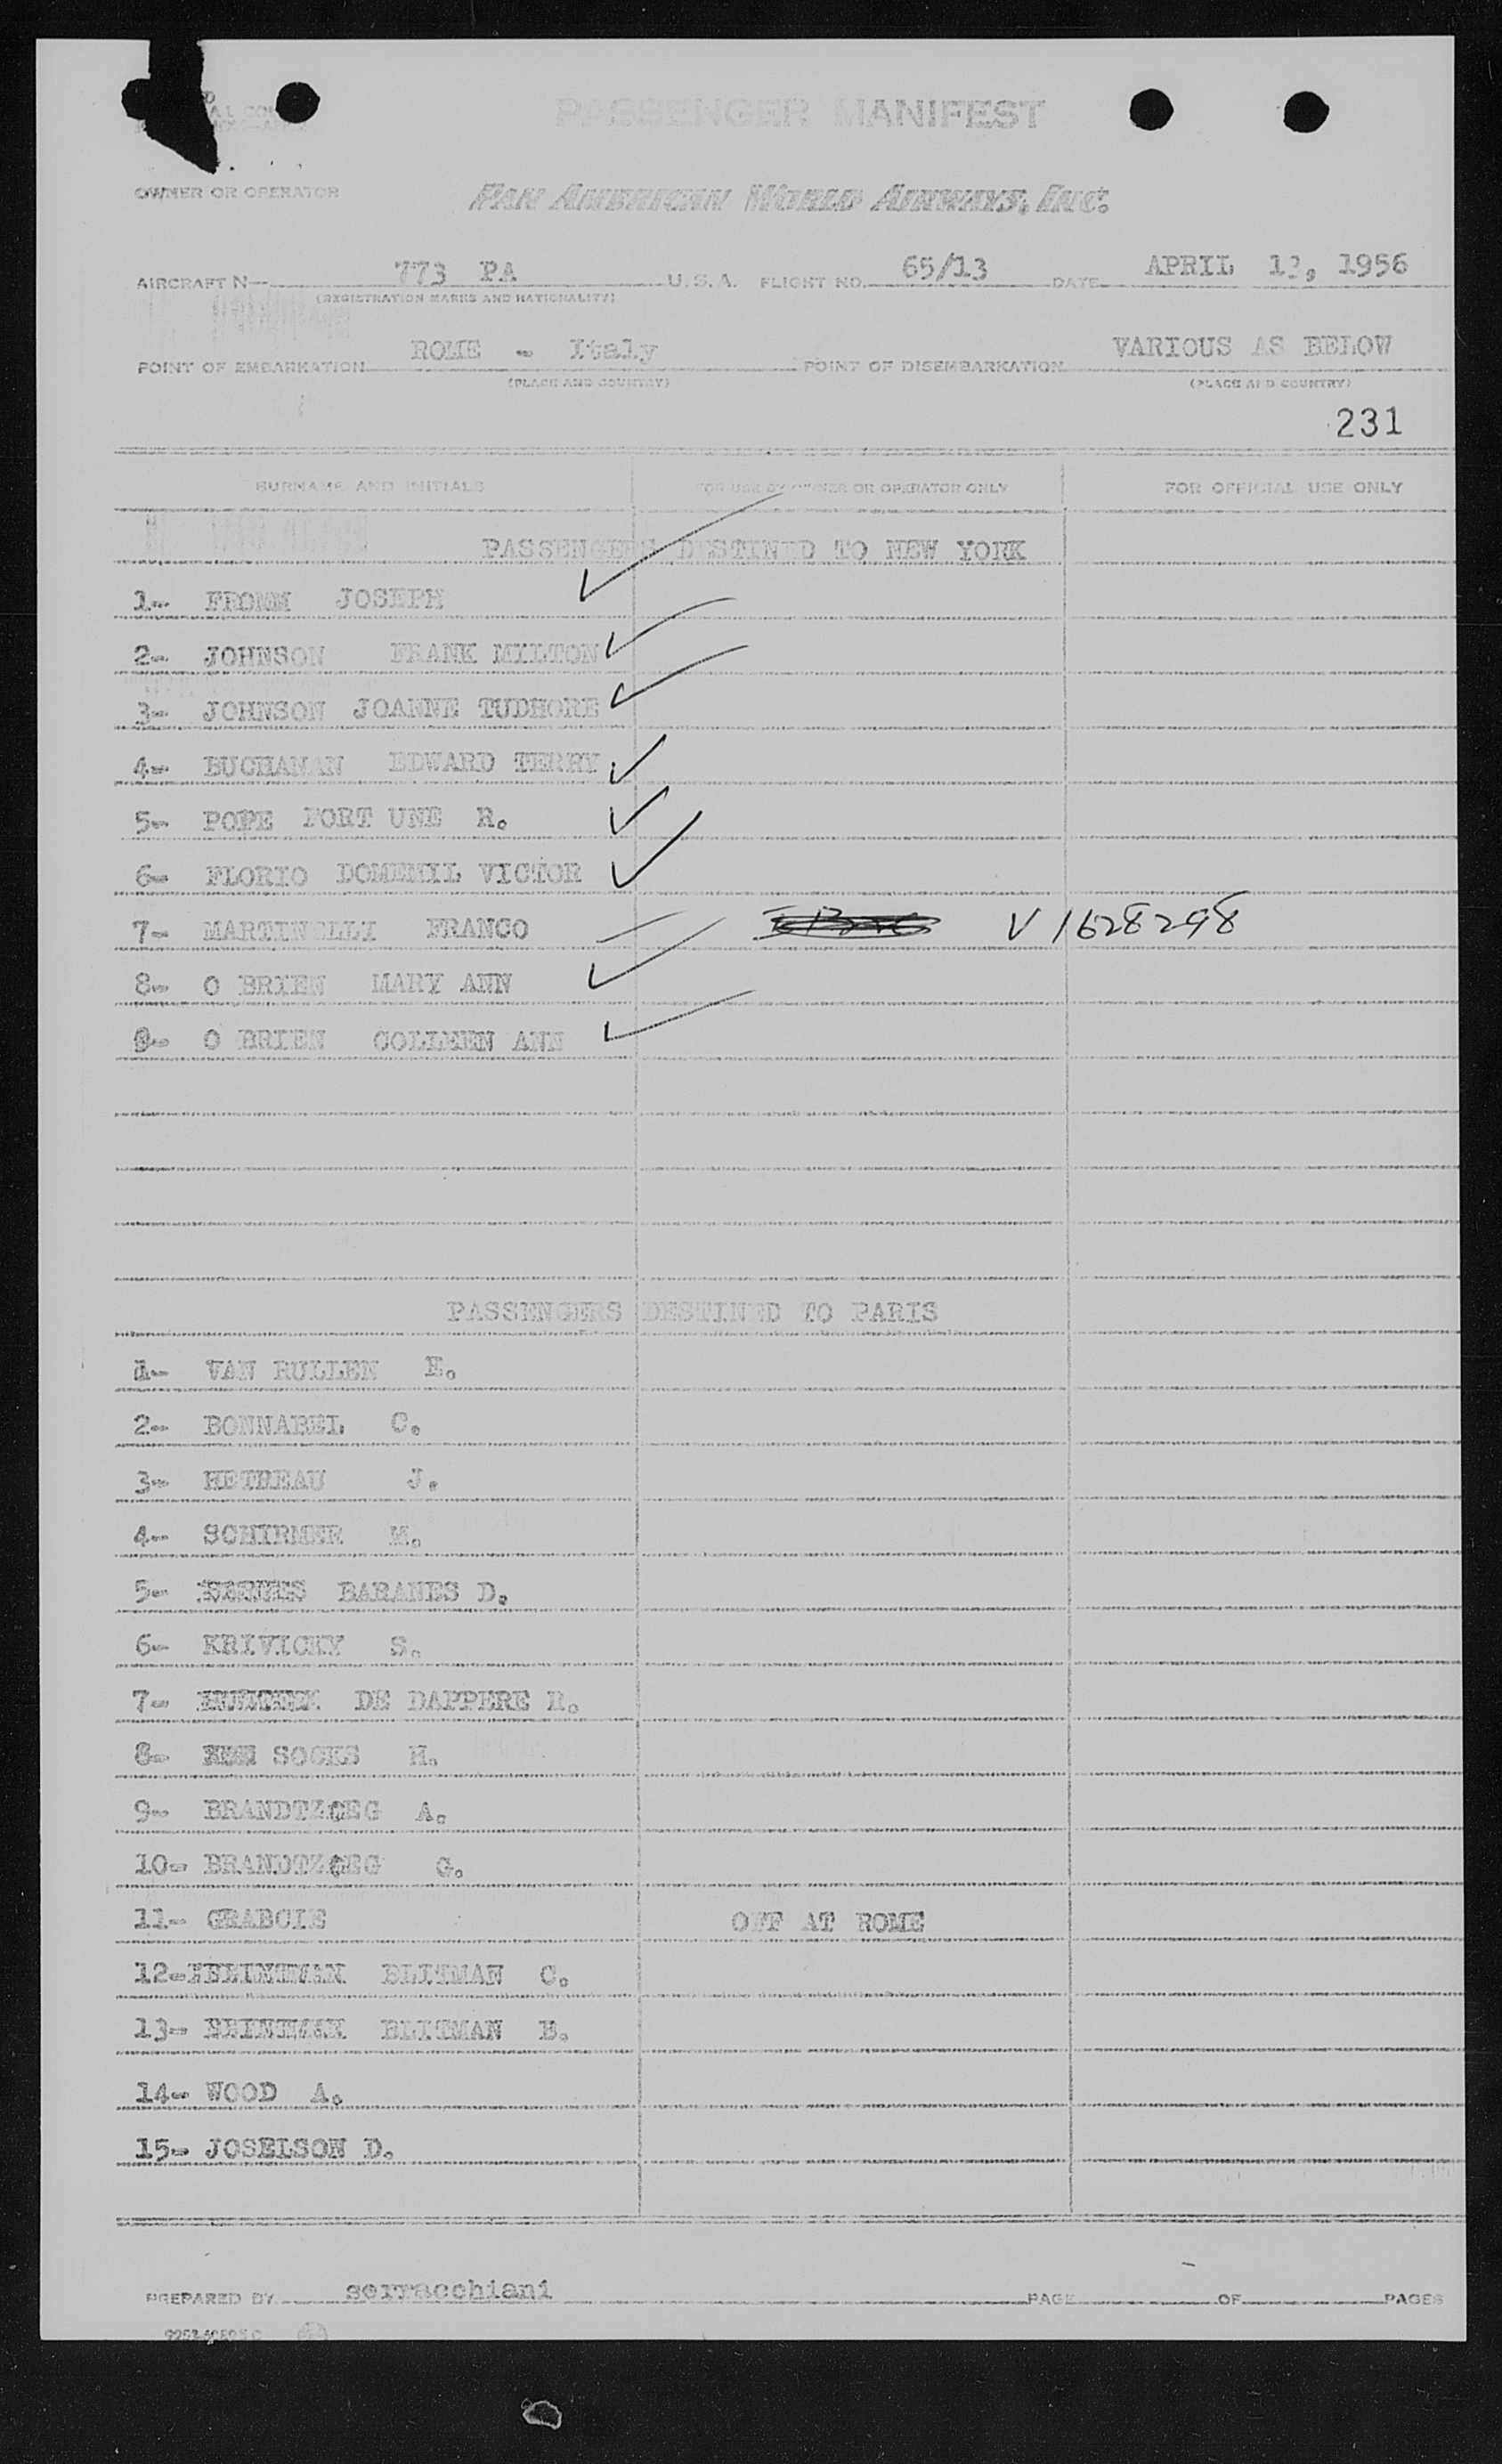 PASSENGER MANIFEST
OWNER OR OPERATOR PAN AMERICAN WORLD AIRWAYS, INC.
AIRCRAFT N— 773 PA U. S. A. FLIGHT NO. 65/13 DATE APRIL 12, 1956
(REGISTRATION MARKS AND NATIONALITY)
POINT OF EMBARKATION ROME - Italy POINT OF DISEMBARKATION VARIOUS AS BELOW
(PLACE AND COUNTRY) (PLACE AND COUNTRY)
231
SURNAME AND INITIALS FOR USE BY OWNER OR OPERATOR ONLY FOR OFFICIAL USE ONLY
PASSENGERS DESTINED TO NEW YORK
1- FROMM JOSEPH
2- JOHNSON FRANK MILTON
3- JOHNSON JOANNE TUDHORE
4- BUCHANAN EDWARD TERRY
5- POPE FORT UNE R.
6- FLORIO DOMENIL VICTOR
7- MARTINELLI FRANCO V 1628298
8- O BRIEN MARY ANN
9- O BRIEN COLLEEN ANN
PASSENGERS DESTINED TO PARIS
1- VAN RULLEN E.
2- BONNABEL C.
3- HETREAU J.
4- SCHIRMER M.
5- BARANES D.
6- KRIVICKY S.
7- DE DAPPERE R.
8- SOCKS H.
9- BRANDTZOEG A.
10- BRANDTZOEG G.
11- GRABOIS OFF AT ROME
12- BLITMAN C.
13- BLITMAN E.
14- WOOD A.
15- JOSELSON D.
PREPARED BY serracchiani PAGE OF PAGES